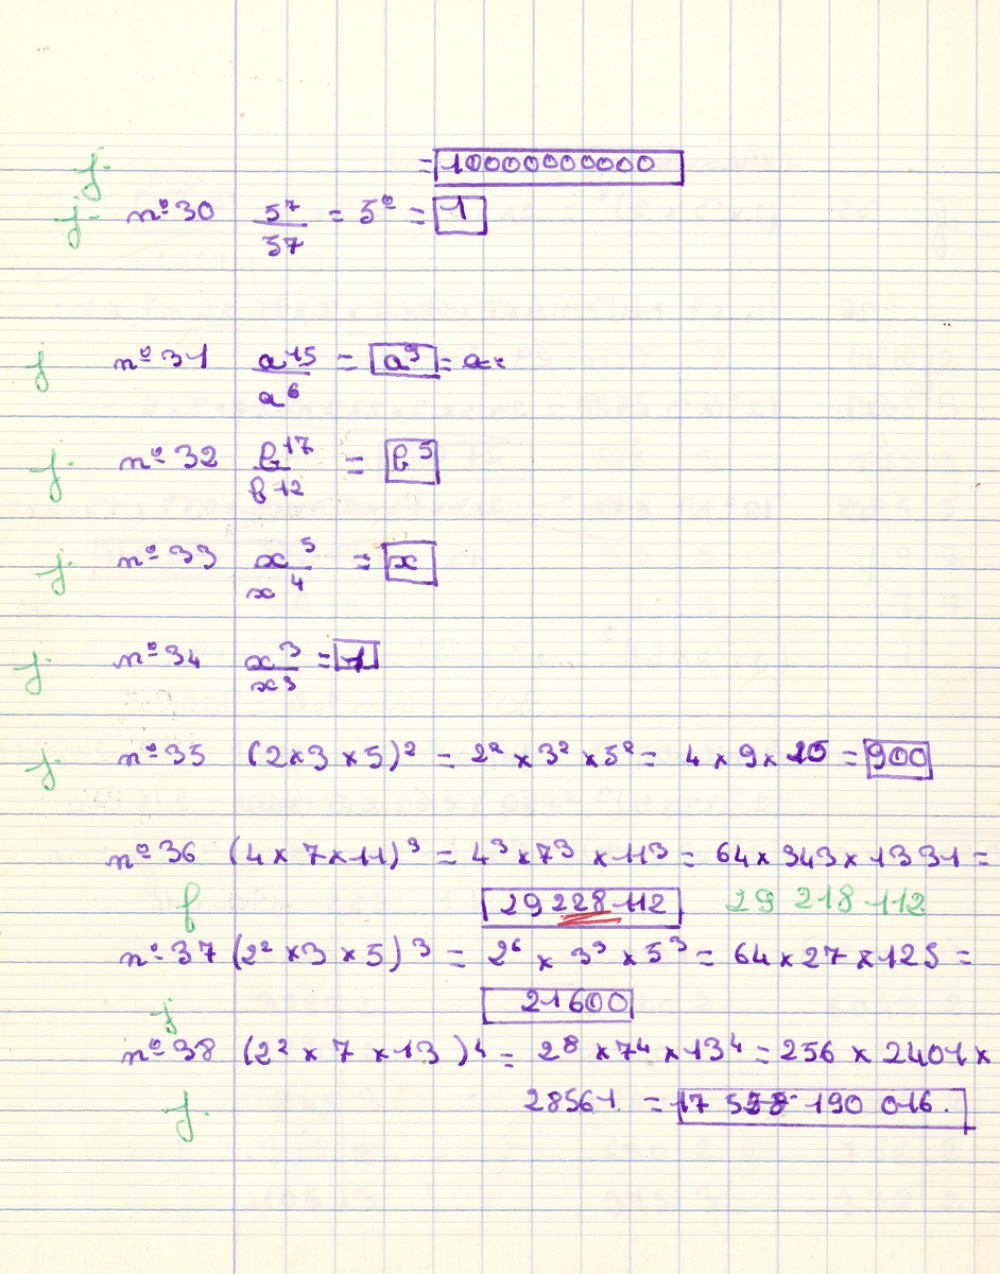 j. = 10000000000
j. nº 30 5⁷/57 = 5⁰ = 1
j nº 31 a¹⁵/a⁶ = a⁹ = a
j. nº 32 b¹⁷/b¹² = b⁵
j. nº 33 x⁵/x⁴ = x
j. nº 34 x³/x³ = 1
j. nº 35 (2 × 3 × 5)² = 2² × 3² × 5² = 4 × 9 × 25 = 900
nº 36 (4 × 7 × 11)³ = 4³ × 7³ × 11³ = 64 × 343 × 1331 =
f 29 228 112 29 218 112
nº 37 (2² × 3 × 5)³ = 2⁶ × 3³ × 5³ = 64 × 27 × 125 =
j 21600
nº 38 (2² × 7 × 13)⁴ = 2⁸ × 7⁴ × 13⁴ = 256 × 2401 ×
j. 28561. = 17 558 190 016.